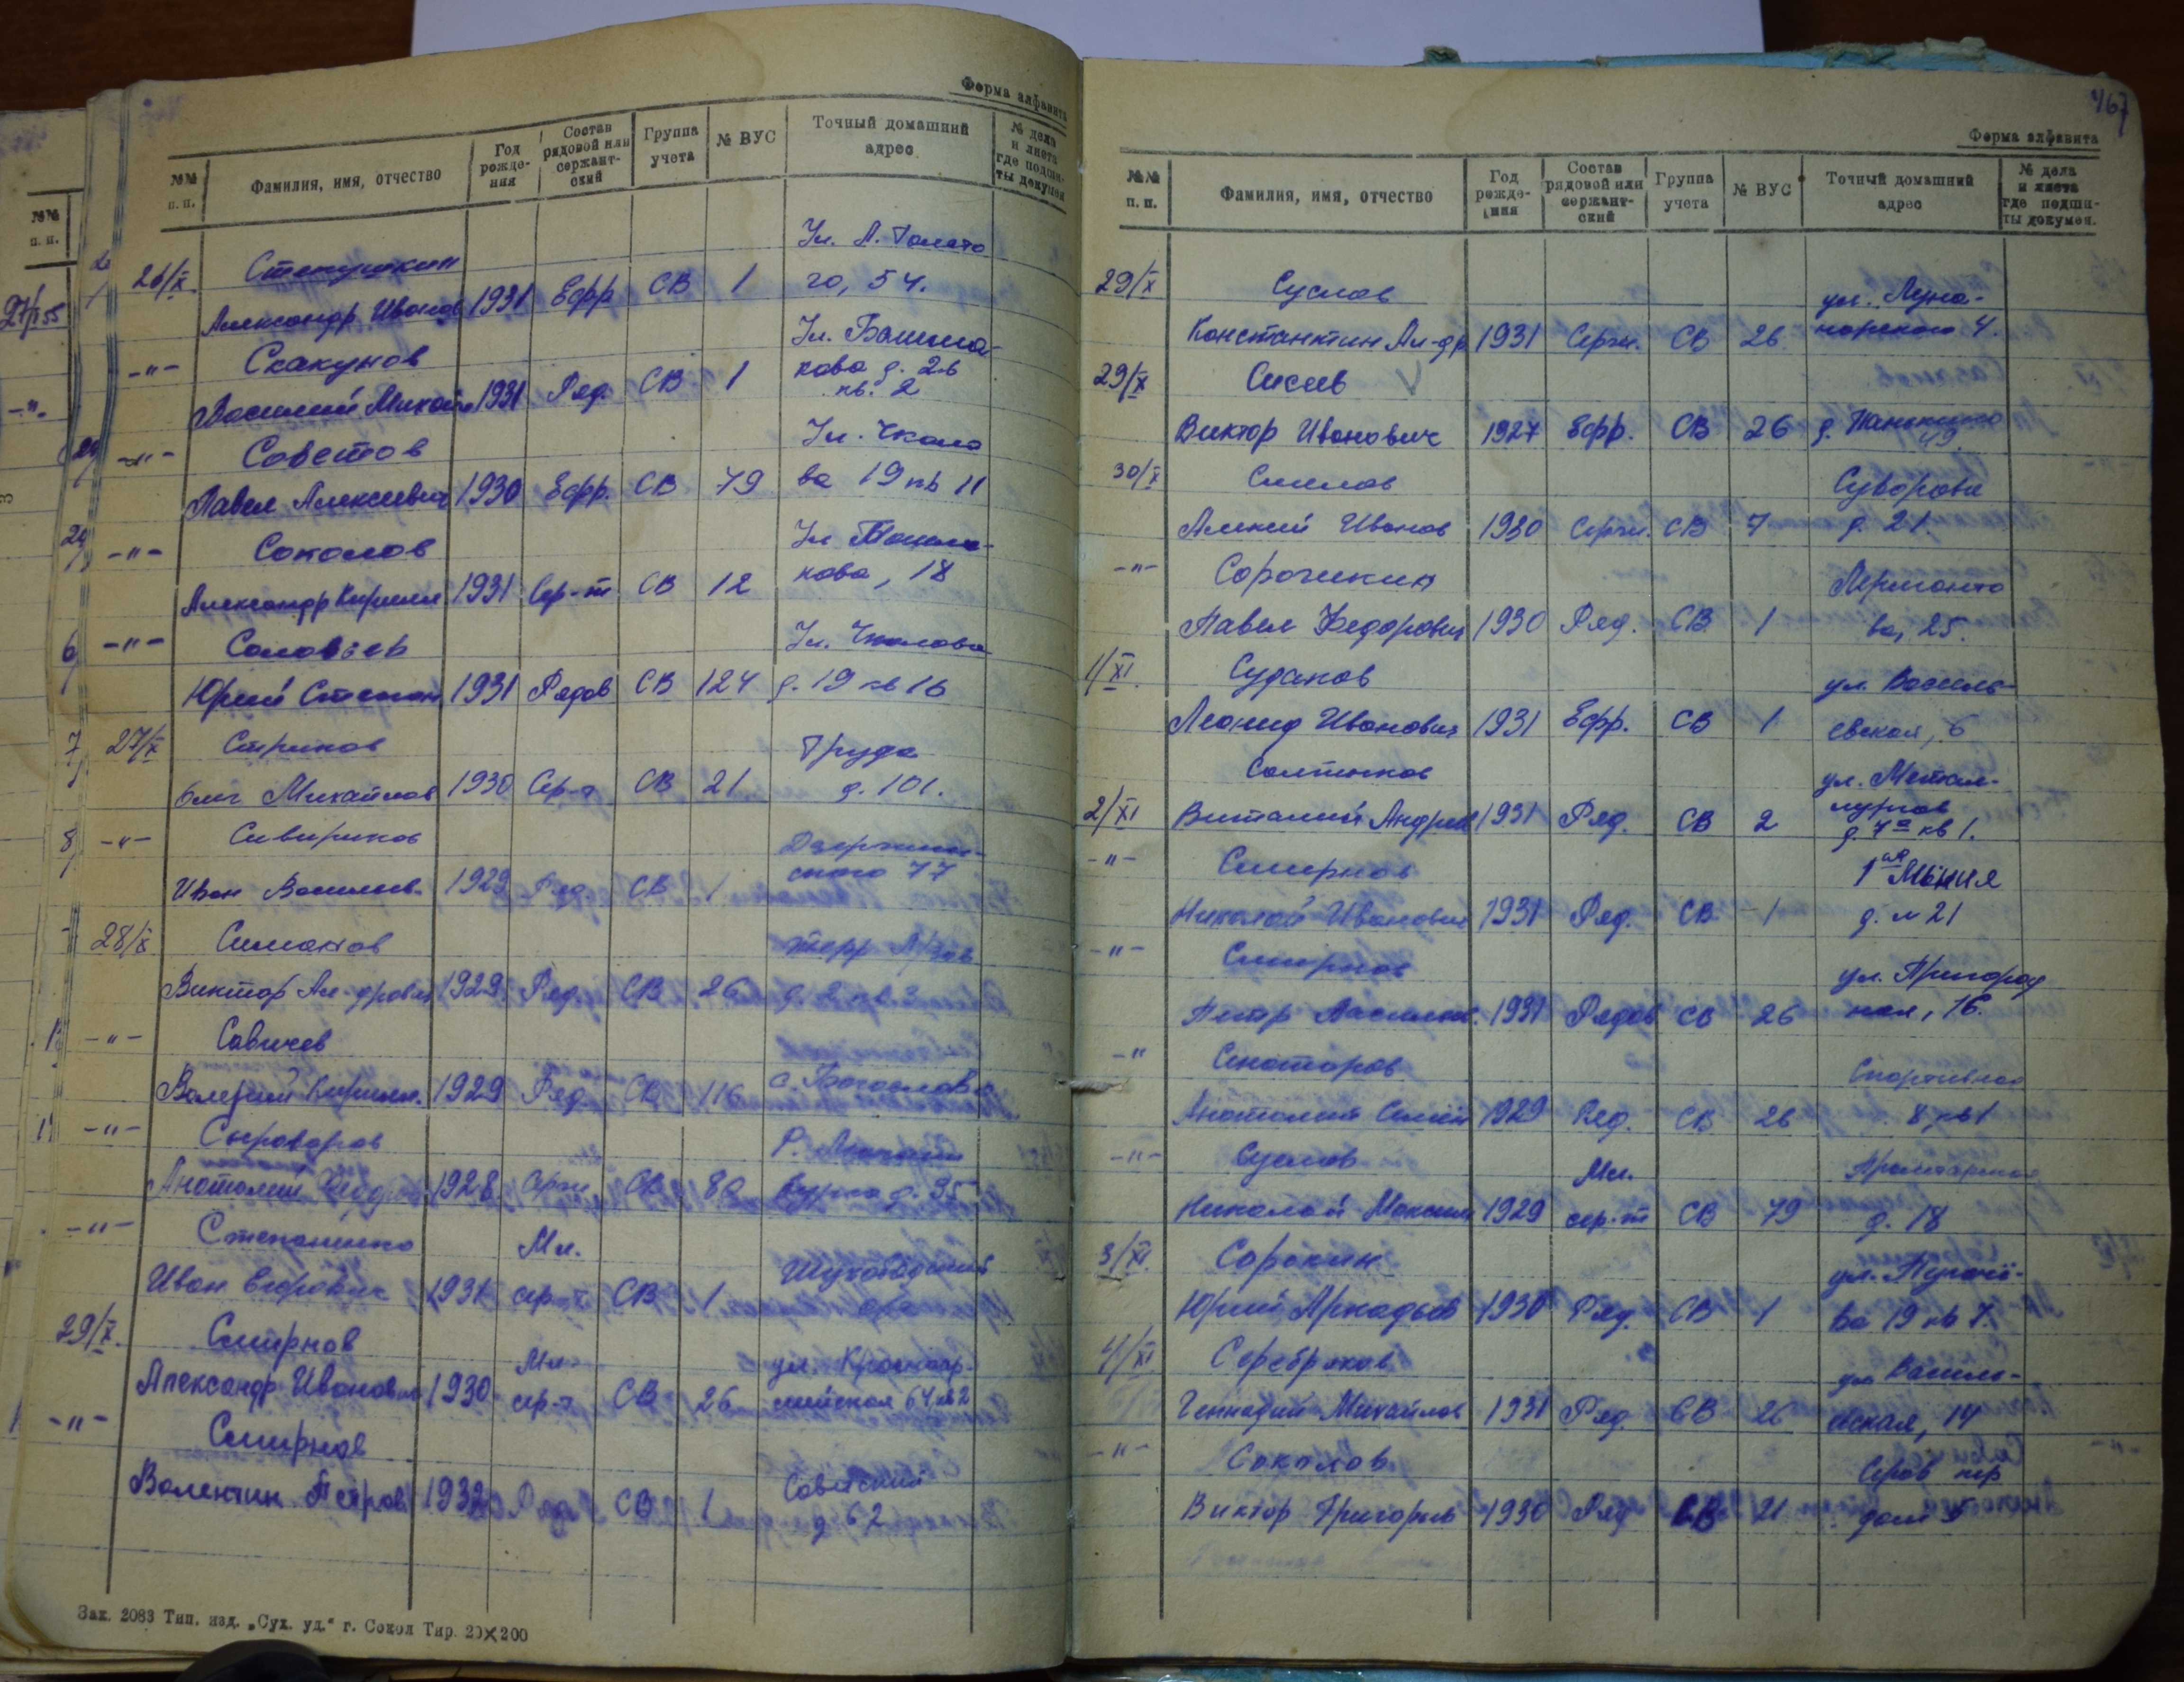 Форма алфавита
№№ п. п.
Фамилия, имя, отчество
Год рожде-ния
Состав рядовой или сержант-ский
Группа учета
№ ВУС
Точный домашний адрес
№ дела и листа где подши-ты докумен.
26/X Степушкин Ул. А. Толсто
Александр Иванов 1931 Ефр СВ 1 го, 54.
-"- Скакунов Ул. Башма-
Василий Михайл 1931 Ряд. СВ 1 кова д. 26
кв. 2
-"- Советов Ул. Чкало
Павел Алексеевич 1930 Ефр. СВ 79 ва 19 кв 11
-"- Соколов Ул Башма-
Александр Кирилл 1931 Сер-т СВ 12 кова, 18
-"- Соловьев Ул. Чкалова
Юрий Степан 1931 Рядов СВ 124 д. 19 кв 16
27/X Стриков Труда
Олег Михайлов 1930 Сер-т СВ 21 д. 101.
-"- Сивириков Дзержин-
Иван Васильев. 1929 Ряд. СВ 1 ского 77
28/X Симанов
Виктор Ал-дрович 1929 Ряд. СВ 26 д. 2 кв. 3
-"- Савичев
Валерий Кирилл. 1929 Ряд. СВ 116 с. Богослово
-"- Сыроваров
Анатолий Федоров 1928 Серж. СВ 80 д. 35
-"- Степаненко Мл.
Иван Егорович 1931 сер-т СВ 1
29/X Смирнов Мл. ул. Красноар-
Александр Иванович 1930 сер-т СВ 26 мейская 64 кв 2
-"- Смирнов Советский
Валентин Петров 1932 Ряд. СВ 1 д 62
Зак. 2083 Тип. изд. „Сух. уд.“ г. Сокол Тир. 20×200
467
Форма алфавита
№№ п. п.
Фамилия, имя, отчество
Год рожде-ния
Состав рядовой или сержант-ский
Группа учета
№ ВУС
Точный домашний адрес
№ дела и листа где подши-ты докумен.
29/X Суслов ул. Луна-
Константин Ал-др 1931 Серж. СВ 26 чарского 4.
29/X Сисев
Виктор Иванович 1927 Ефр. СВ 26 д. Панькино
49
30/X Смелов Суворова
Алексей Иванов 1930 Серж. СВ 7 д. 21.
-"- Сорочикин Лермонто
Павел Федорович 1930 Ряд. СВ 1 ва, 25.
1/XI. Судаков ул. Василь-
Леонид Иванович 1931 Ефр. СВ 1 евская, 6
Салтыков ул. Метал-
2/XI Виталий Андреев 1931 Ряд. СВ 2 лургов
д. 4а кв 1.
-"- Смирнов 1ая Линия
Николай Иванович 1931 Ряд. СВ 1 д. № 21
-"- Смирнов ул. Пригород
Петр Васильев. 1931 Рядов СВ 26 ная, 16.
-" Снаторов Спортивная
Анатолий Семен 1929 Ряд. СВ 26 8 кв 1
-"- Суслов Мл. Пролетарская
Николай Максим 1929 сер-т СВ 79 д. 18
3/XI. Сорокин ул. Пугачё-
Юрий Аркадьев 1930 Ряд. СВ 1 ва 19 кв 7.
4/XI Серебряков ул Василь-
Геннадий Михайлов 1931 Ряд. СВ 26 евская, 14
-"- Соколов Серов пер
Виктор Григорьев 1930 Ряд СВ 21 дом 5